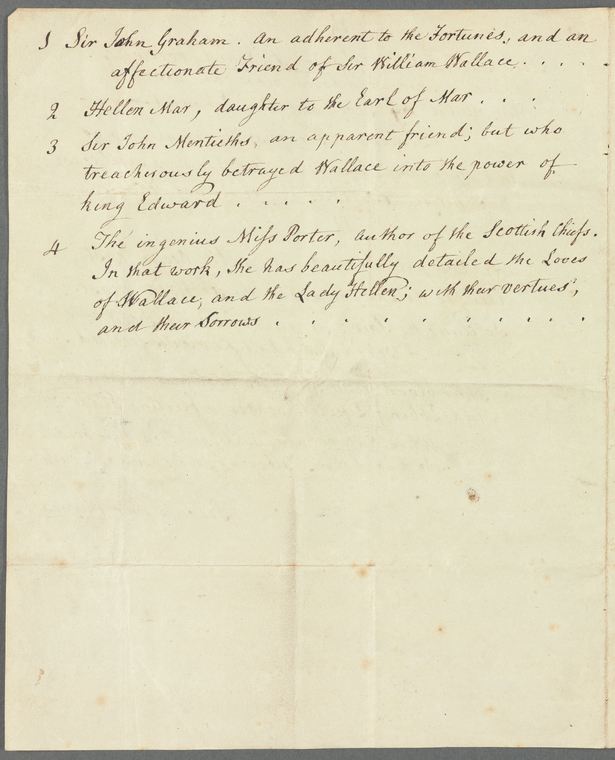 1 Sir John Graham. An adherent to the Fortunes, and an
affectionate Friend of Sir William Wallace . . . .
2 Hellen Mar, daughter to the Earl of Mar . . .
3 Sir John Mentieths, an apparent friend; but who
treacherously betrayed Wallace into the power of
king Edward . . . . .
4 The ingenius Miss Porter, Author of the Scottish Chiefs.
In that work, She has beautifully detailed the Loves
of Wallace, and the Lady Hellen; with their vertues,
and their Sorrows . . . . . . . . . .